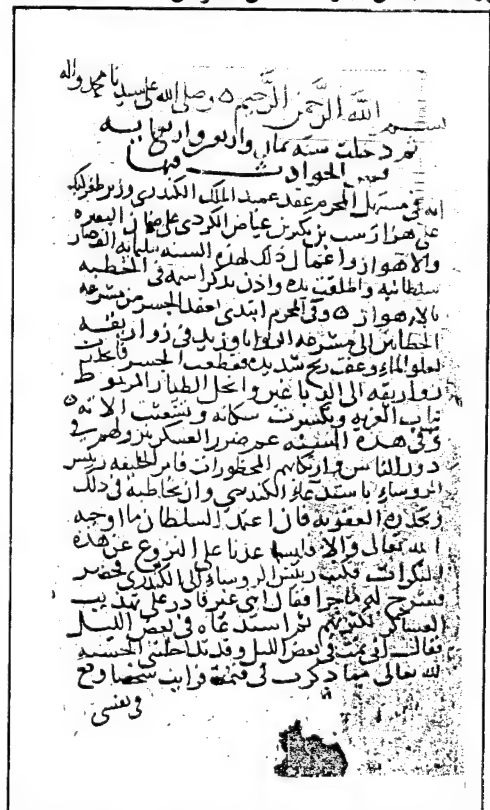 بسم الله الرحمن الرحيم وصلى الله على سيدنا محمد واله
ثم دخلت سنة ثمان واربعين واربعمائة
فمن الحوادث فيها
انه في مستهل المحرم عقد عميد الملك الكندري وزير طغرلبك
على هزارسب بن بنكير بن عياض الكردي على ضمان البصرة
والاهواز واعمال ذلك لهذه السنة بثلثمائة الف دينار
سلطانية واطلقت يده واذن بذكر اسمه في الخطبة
بالاهواز وفي المحرم ابتدئ بعقد الجسر من مشرعة
الحطابين الى مشرعة الروايا وزيد في زواريقه
لعلو الماء وعقب ريح شديدة فقطعت الجسر فانحدرت
زواريقه الى الدباغين وانحل الطيار المربوط
بباب الغربة وتكسرت سكانه وتشعثت الاته
وفي هذه السنة عم ضرر العسكر بنزولهم في
دور الناس وارتكابهم المحظورات فامر الخليفة رئيس
الروساء باستدعاء الكندري وان يخاطبه في ذلك
ويحذره العقوبة فان اعتمد السلطان ما اوجبه
الله تعالى والا فليساعدنا على النزوح عن هذه
المنكرات فكتب رئيس الروساء الى الكندري فحضر
فشرح له ما جرا فقال اني غير قادر على تهذيب
العساكر لكثرتهم ثم استدعاه في بعض الليل
فقال اني نمت في بعض الليل وقد تداخلتني الخشية
لله تعالى مما ذكرت في فنمت فرايت شخصا وقع
في نفسي